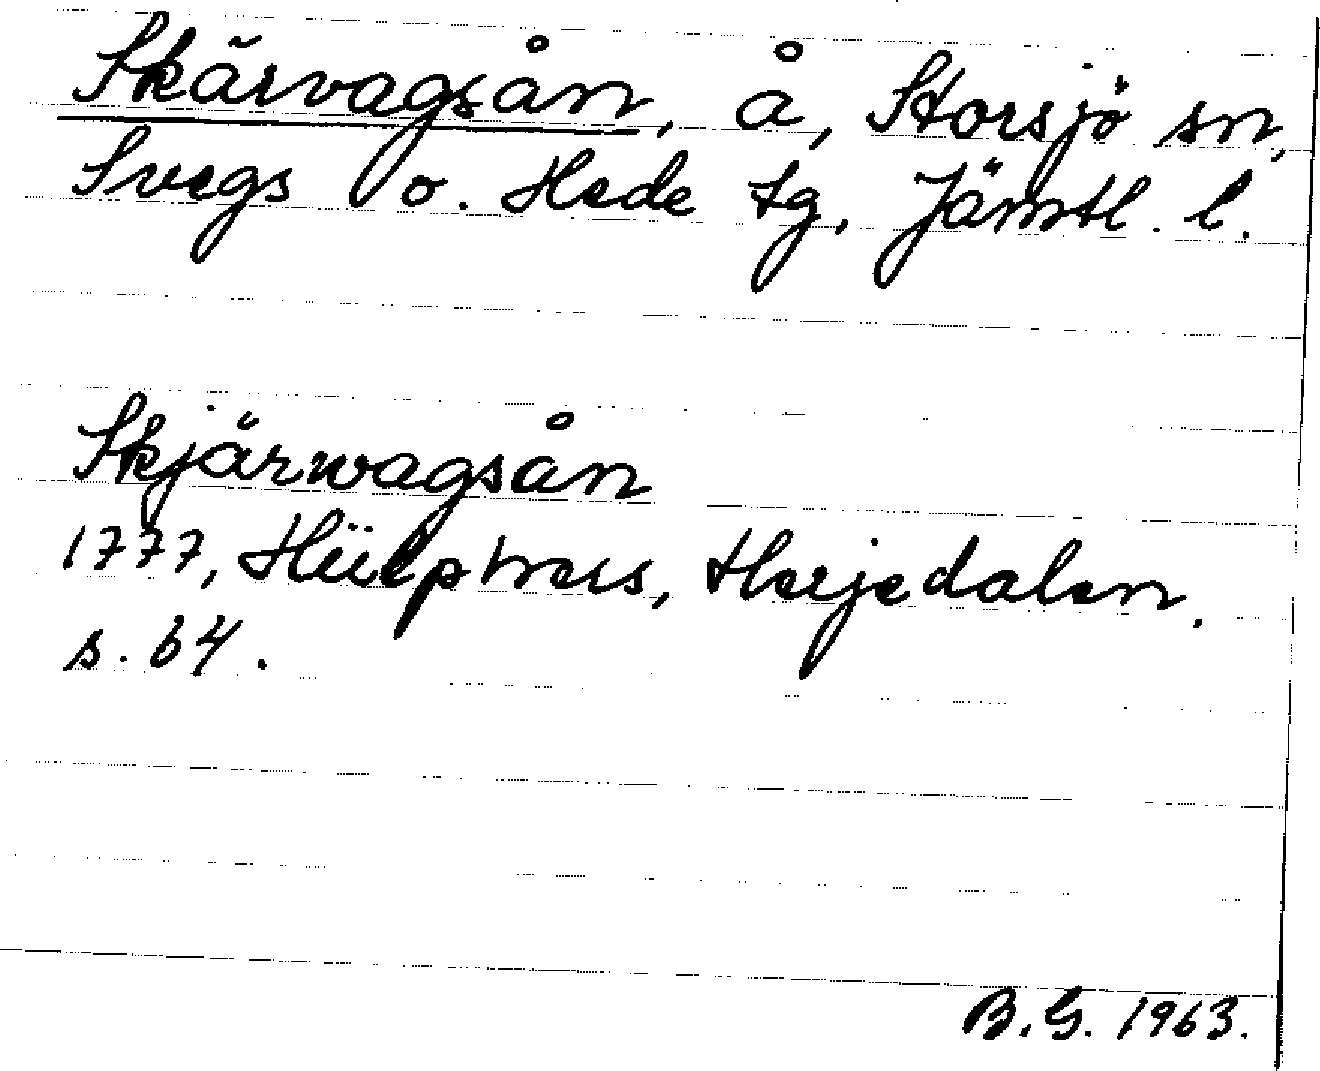 Skärvagsån, å, Storsjö sn,
Svegs o. Hede tg, Jämtl. l.
Skjärwagsån
1777, Hülphers, Herjedalen.
s. 64.
B.G. 1963.